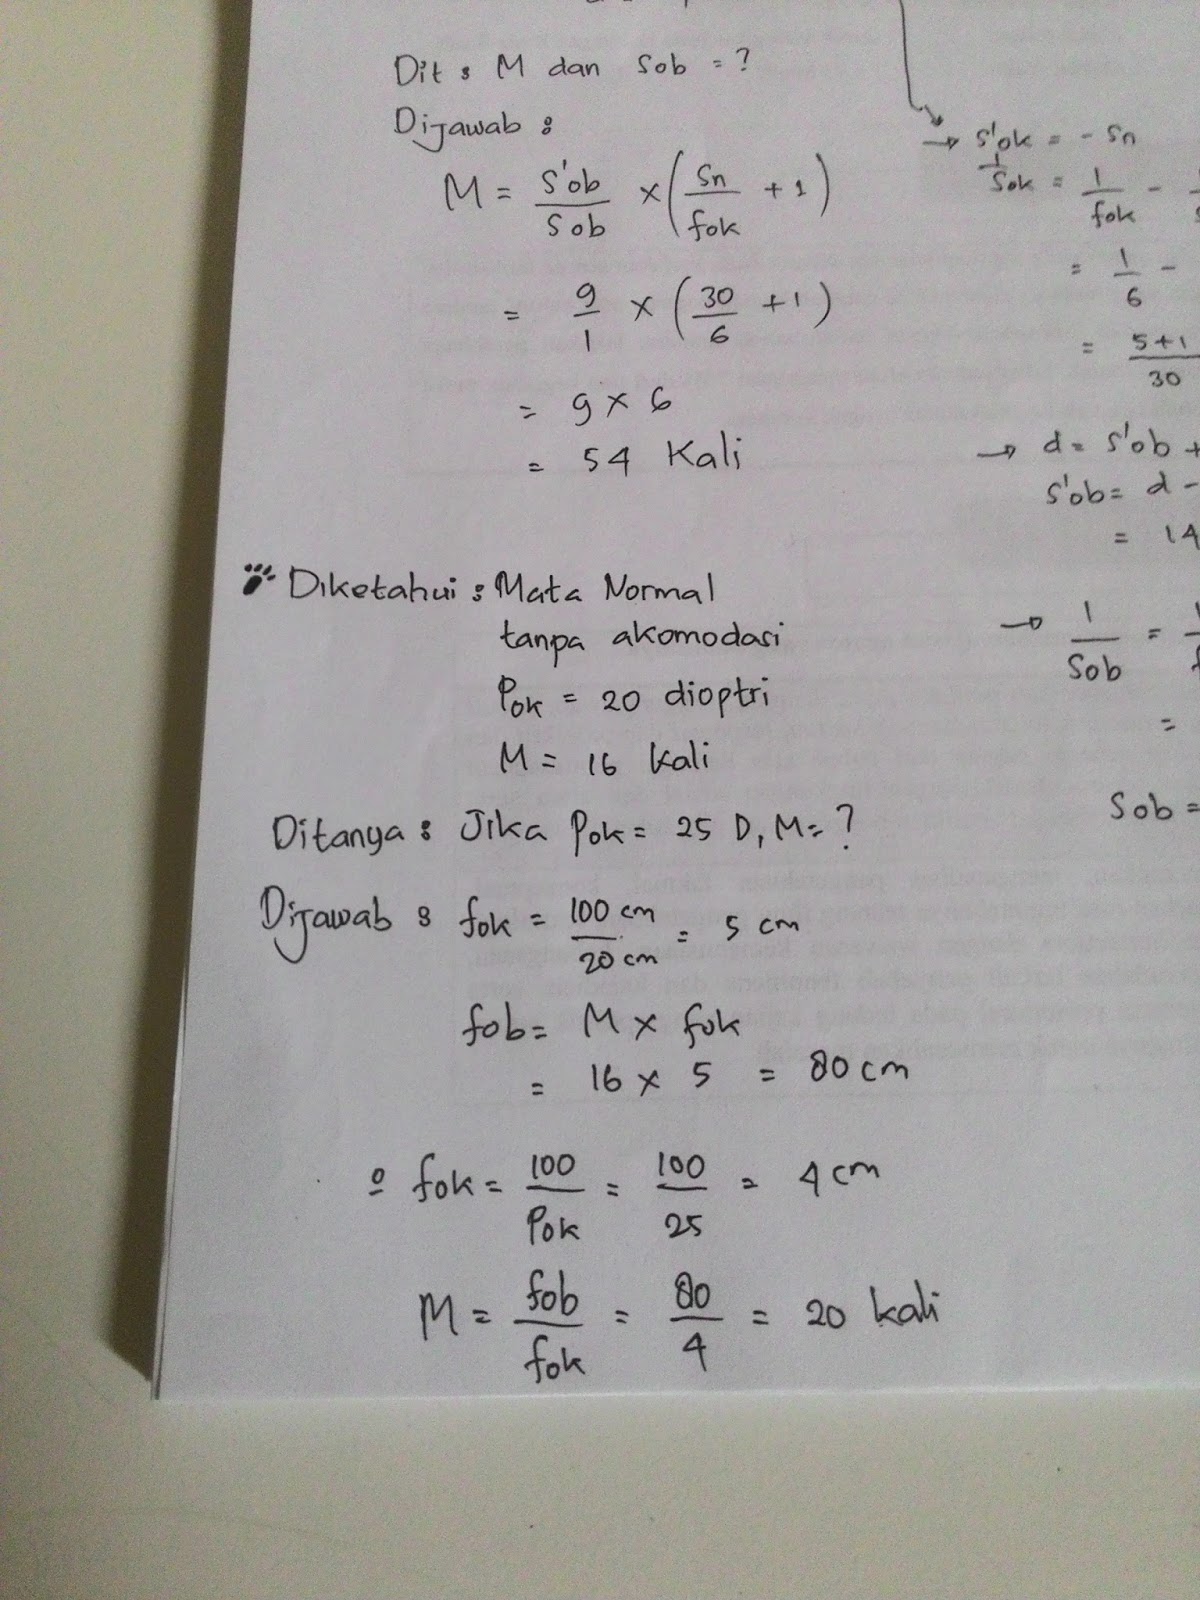 Dit : M dan Sob = ?
Dijawab :
M = S'ob/Sob × (Sn/fok + 1)
= 9/1 × (30/6 + 1)
= 9 × 6
= 54 Kali
→ S'ok = - Sn
1/Sok = 1/fok -
= 1/6 -
= 5+1/30
→ d = S'ob +
S'ob = d -
= 14
→ 1/Sob =
=
Sob =
Diketahui : Mata Normal
tanpa akomodasi
Pok = 20 dioptri
M = 16 kali
Ditanya : Jika Pok = 25 D, M = ?
Dijawab : fok = 100 cm/20 cm = 5 cm
fob = M × fok
= 16 × 5 = 80 cm
fok = 100/Pok = 100/25 = 4 cm
M = fob/fok = 80/4 = 20 kali